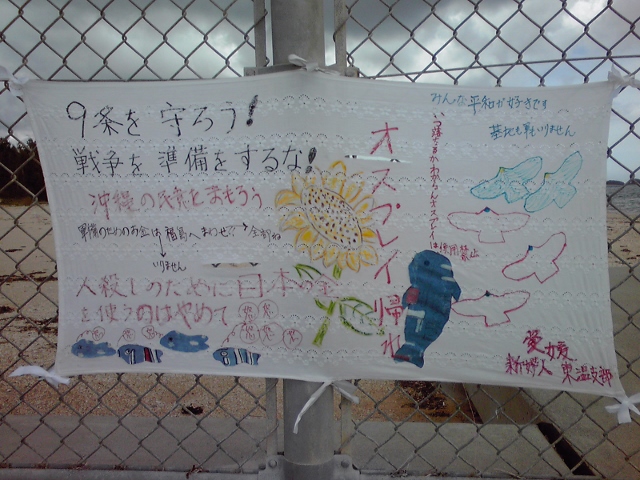 9条を守ろう!
戦争を準備をするな!
沖縄の民意をまもろう
戦備のためのお金は福島へまわせ!? → 全部ね
↓いりません
人殺しのために日本の金
を使うのはやめて
オスプレイ帰れ
みんな平和が好きです
基地も軍もいりません
いつ落ちるかわからんオスプレイは使用禁止
愛媛
新婦人 東温支部